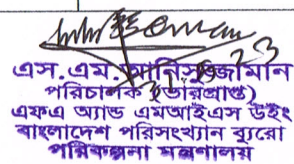 এস.এম.আনিসুজ্জামান
পরিচালক (ভারপ্রাপ্ত)
এফএ অ্যান্ড এমআইএস উইং
বাংলাদেশ পরিসংখ্যান ব্যুরো
পরিকল্পনা মন্ত্রণালয়